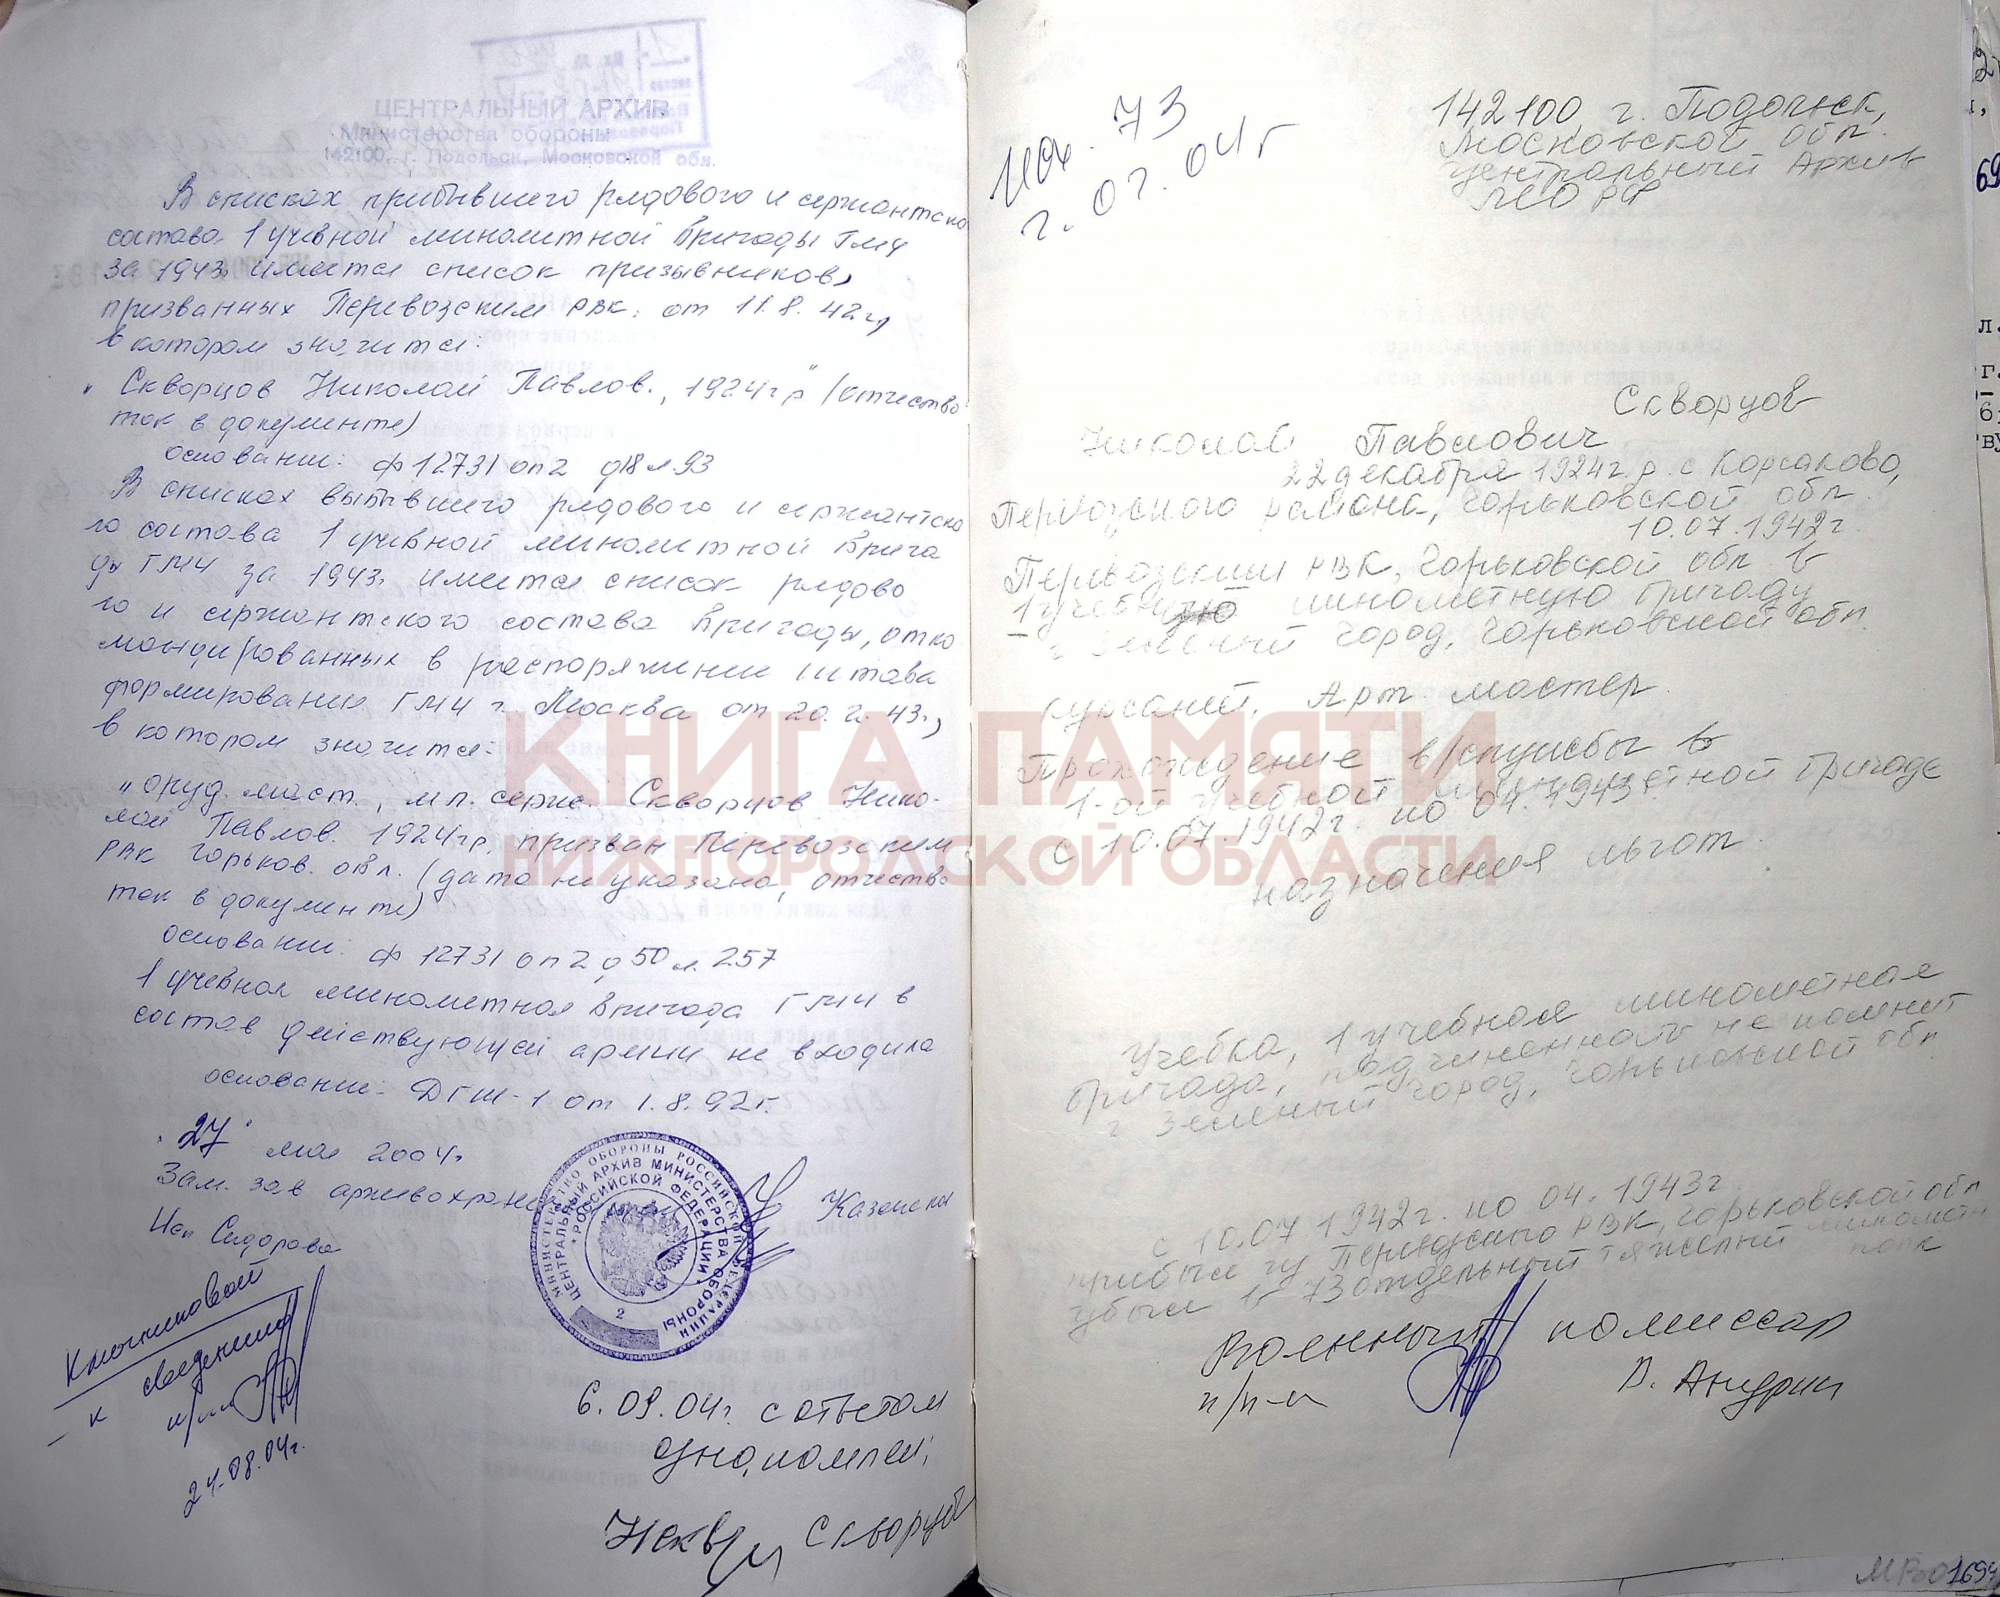 ЦЕНТРАЛЬНЫЙ АРХИВ
Министерства обороны
142100, г. Подольск, Московской обл.
В списках прибывшего рядового и сержантско
состава 1 учебной минометной бригады ГМЧ
за 1943г. имеется список призывников,
призванных Перевозским РВК. от 11.8.42г,
в котором значится:
"Скворцов Николай Павлов., 1924гр" (отчество
так в документе)
основание: ф 12731 оп2 д18 л93
В списках выбывшего рядового и сержантско
го состава 1 учебной минометной брига
ды ГМЧ за 1943г. имеется список рядово
го и сержантского состава бригады, отко
мандированных в распоряжение штаба
формирования ГМЧ г. Москва от 20.2.43г.,
в котором значится:
"оруд. маст., мл. серж. Скворцов Нико-
лай Павлов. 1924гр, призван Перевозским
РВК Горьков. обл. (дата не указана, отчество
так в документе)
основание: ф 12731 оп2 д50 л.257
1 учебная минометная бригада ГМЧ в
состав действующей армии не входила
основание: ДГШ-1 от 1.8.92г.
"27" мая 2004г.
Зам. зав архивохранилищем
Казенска
Исп Сидорова
МИНИСТЕРСТВО ОБОРОНЫ РОССИЙСКОЙ ФЕДЕРАЦИИ
ЦЕНТРАЛЬНЫЙ АРХИВ МИНИСТЕРСТВА ОБОРОНЫ
РОССИЙСКОЙ ФЕДЕРАЦИИ
2
Ключниковой
- к сведению
24.08.04г.
6.09.04г. с ответом
ознакомлен;
Скворцов
Исх. 73
г. 07.04г
142100 г. Подольск,
Московской обл.
Центральный Архив
МО РФ
Скворцов
Николай Павлович
22 декабря 1924г.р. с Корсаково,
Перевозского района, Горьковской обл.
10.07.1942г.
Перевозским РВК, Горьковской обл в
1 учебную минометную бригаду
г Зеленый город, Горьковской обл.
курсант, Арт. мастер.
Прохождение в/службы в
1-ой учебной минометной бригаде
с 10.07.1942г. по 04.1943г.
назначения льгот.
Учебка, 1 учебная минометная
бригада, подчиненность не помнит
г Зеленый город, Горьковской обл.
с 10.07 1942г. по 04.1943г
прибыл из Перевозского РВК, Горьковской обл
убыл в 73 отдельный тяжелый минометн
полк
Военный комиссар
п/п-к
В. Андрин
КНИГА ПАМЯТИ
НИЖЕГОРОДСКОЙ ОБЛАСТИ